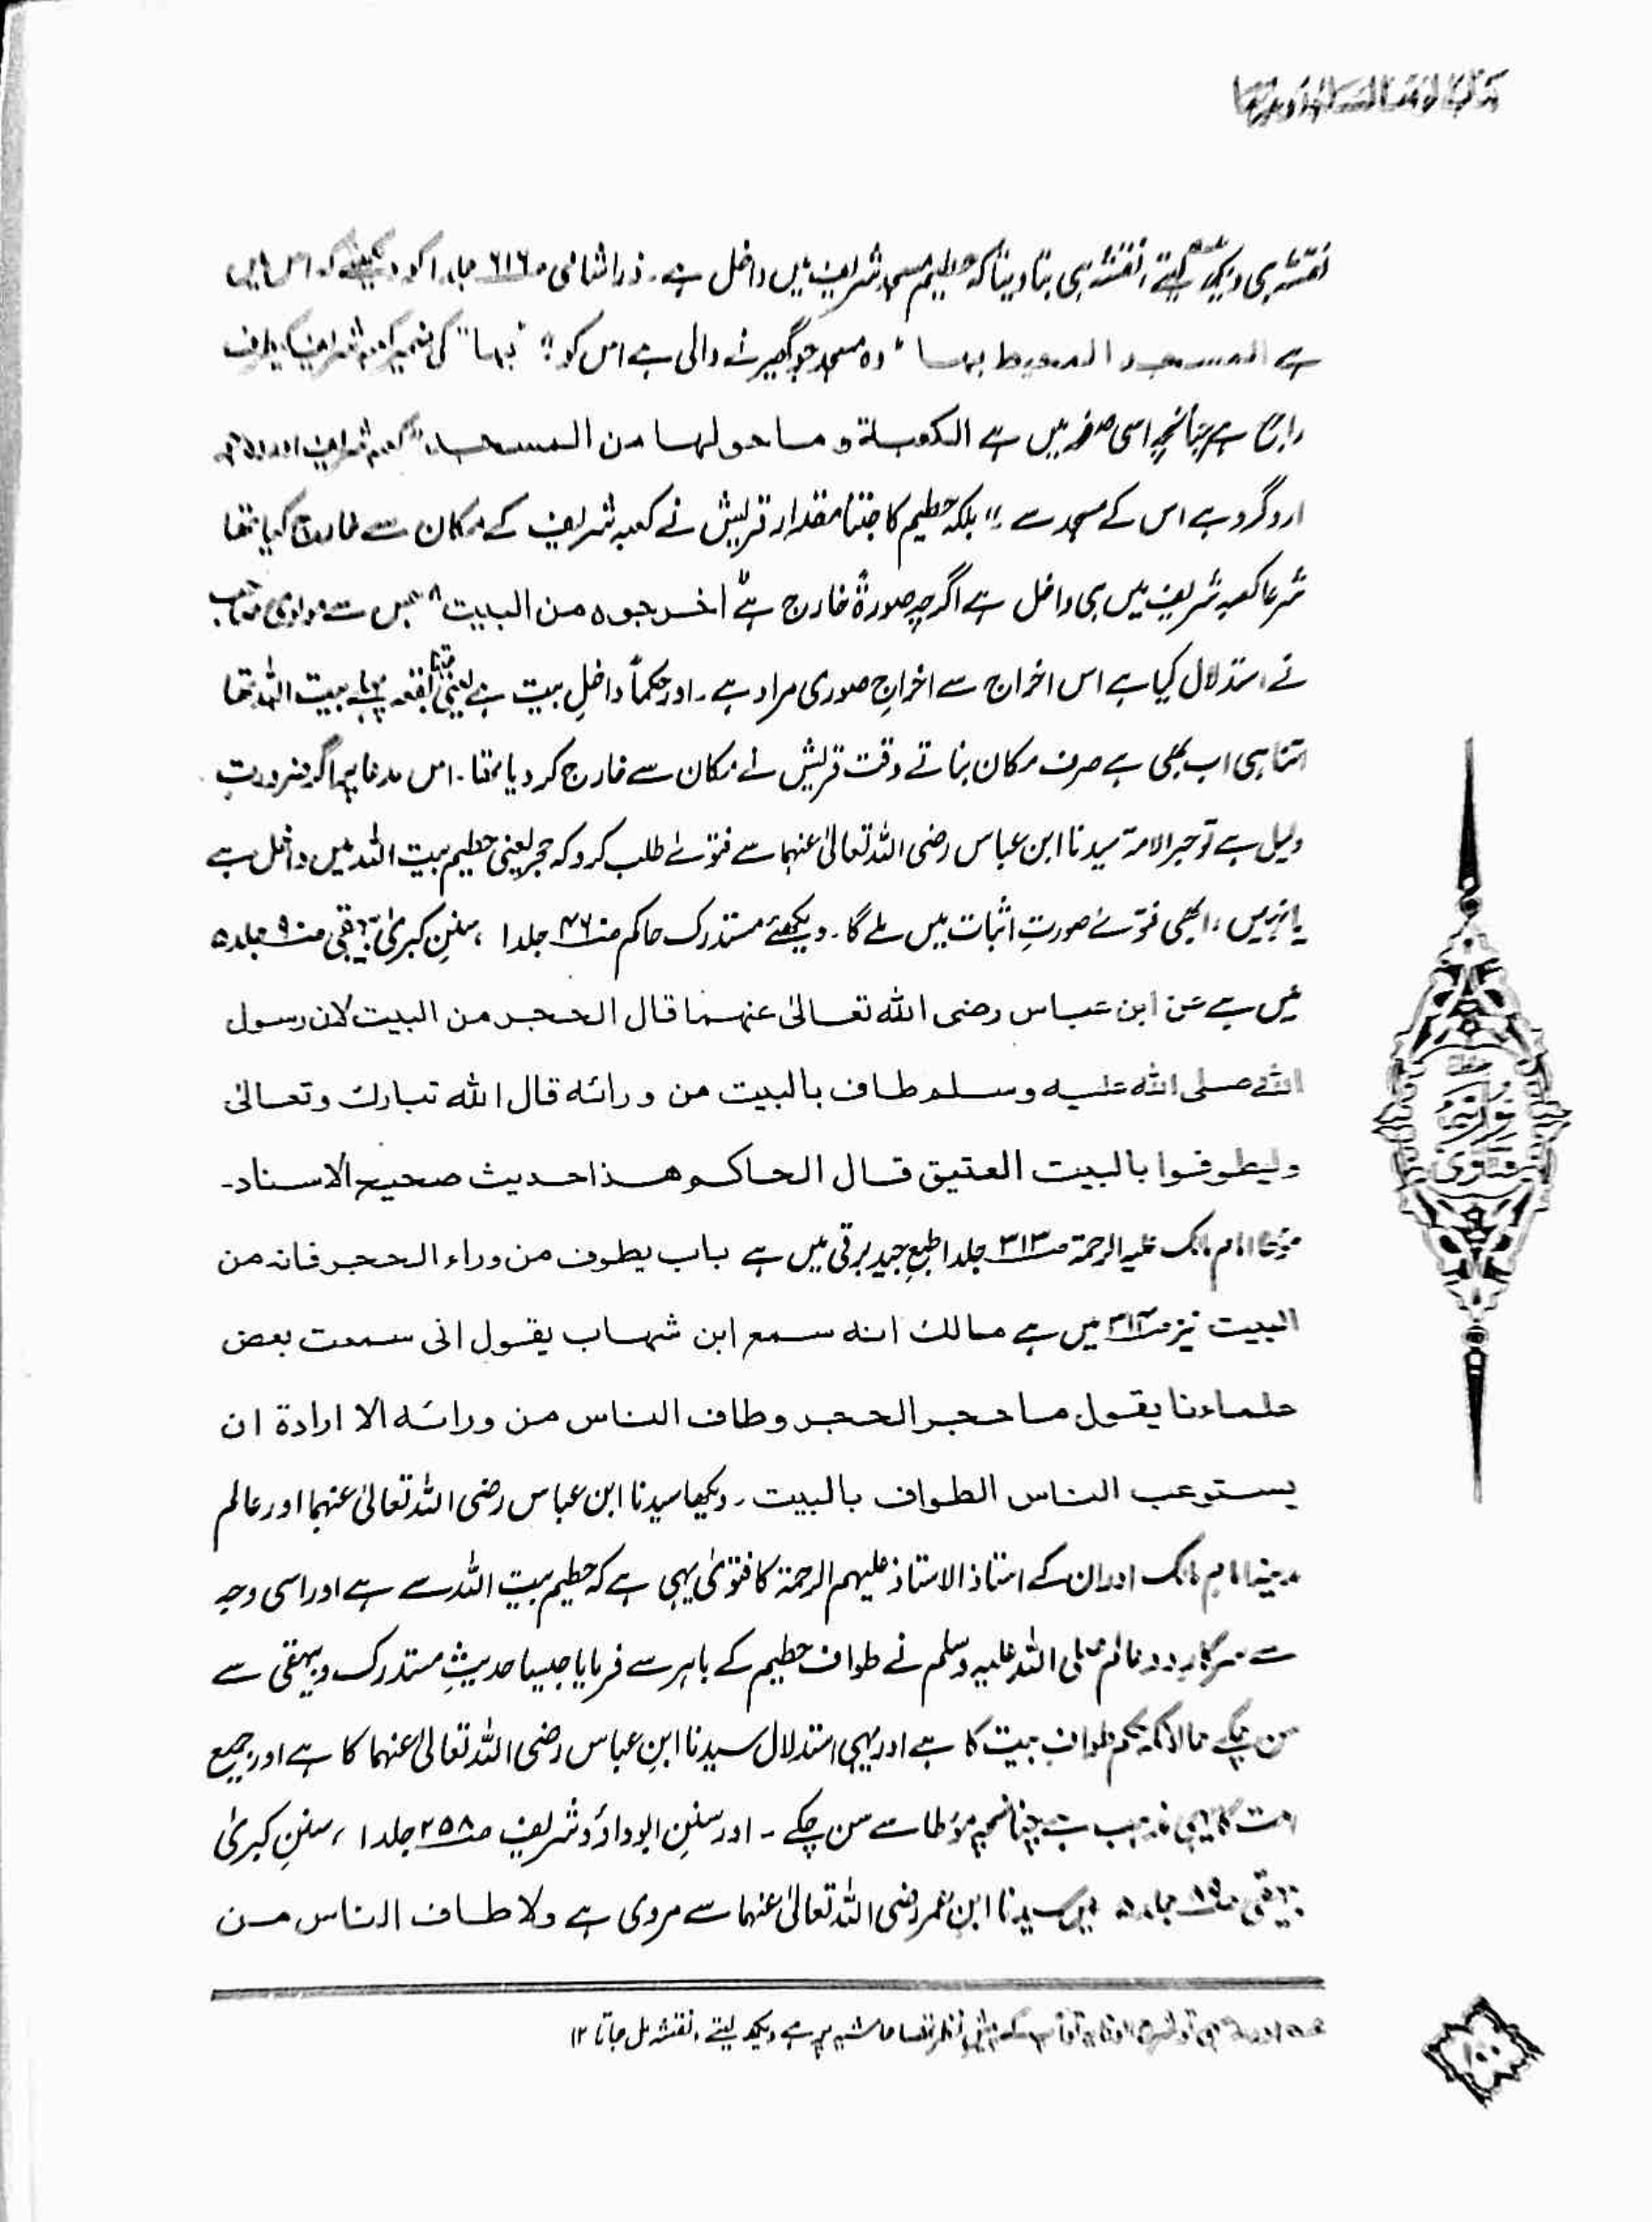 نقشہ ہی دیکھ لیتے، نقشہ ہی بتا دیتا کہ حطیم مسجد شریف میں داخل ہے۔ ذرا شامی صـ۶۱۶ جلد ا کو دیکھئے کہ اس میں
ہے المسجد المحیط بہا " وہ مسجد جو گھیرنے والی ہے اس کو " "بہا" کی ضمیر کعبہ شریف کی طرف
راجع ہے چنانچہ اسی صفحہ میں ہے الکعبۃ و ما حولہا من المسجد " کعبہ شریف اور جو
اردگرد ہے اس کے مسجد سے " بلکہ حطیم کا جتنا مقدار قریش نے کعبہ شریف کے مکان سے خارج کیا تھا
شرعا کعبہ شریف میں ہی داخل ہے اگرچہ صورۃً خارج ہے " اخرجوہ من البیت " جس سے مولوی صاحب
نے استدلال کیا ہے اس اخراج سے اخراجِ صوری مراد ہے۔ اور حکماً داخلِ بیت ہے یعنی جتنا بقعہ پہلے بیت اللہ تھا
اتنا ہی اب بھی ہے صرف مکان بناتے وقت قریش نے مکان سے خارج کر دیا تھا۔ اس مدعا پر اگر ضرورت
دلیل ہے تو حبر الامۃ سیدنا ابن عباس رضی اللہ تعالیٰ عنہما سے فتوےٰ طلب کرو کہ حجر یعنی حطیم بیت اللہ میں داخل ہے
یا نہیں، ابھی فتوےٰ صورتِ اثبات میں ملے گا۔ دیکھئے مستدرک حاکم صـ۴۶۰ جلد ا ، سننِ کبریٰ بیہقی صـ۹۰ جلد ۵
میں ہے عن ابن عباس رضی اللہ تعالیٰ عنہما قال الحجر من البیت لان رسول
اللہ صلی اللہ علیہ وسلم طاف بالبیت من ورائہ قال اللہ تبارک وتعالیٰ
ولیطوفوا بالبیت العتیق قال الحاکم ھذا حدیث صحیح الاسناد۔
مؤطا امام مالک علیہ الرحمۃ صـ۳۱۳ جلد ا طبع جید برقی میں ہے باب یطوف من وراء الحجر فانہ من
البیت نیز صـ۳۱۴ میں ہے مالک انہ سمع ابن شہاب یقول انی سمعت بعض
علماءنا یقول ما حجر الحجر وطاف الناس من ورائہ الا ارادۃ ان
یستوعب الناس الطواف بالبیت۔ دیکھا سیدنا ابن عباس رضی اللہ تعالیٰ عنہما اور عالم
مدینہ امام مالک اور ان کے استاذ الاستاذ علیہم الرحمۃ کا فتویٰ یہی ہے کہ حطیم بیت اللہ سے ہے اور اسی وجہ
سے سرکار دو عالم صلی اللہ علیہ وسلم نے طواف حطیم کے باہر سے فرمایا جیسا حدیثِ مستدرک و بیہقی سے
سن چکے حالانکہ حکم طوافِ بیت کا ہے اور یہی استدلال سیدنا ابنِ عباس رضی اللہ تعالیٰ عنہما کا ہے اور جمیع
امت کا یہی مذہب ہے چنانچہ مؤطا سے سن چکے ۔ اور سننِ ابوداؤد شریف صـ۲۵۸ جلد ا ، سننِ کبریٰ
بیہقی صـ۸۹ جلد ۵ میں سیدنا ابنِ عمر رضی اللہ تعالیٰ عنہما سے مروی ہے ولا طاف الناس من
نظر تھا حاشیہ پر ہے دیکھ لیتے، نقشہ مل جاتا ۱۲
فتاویٰ نوریہ
۱۰۰